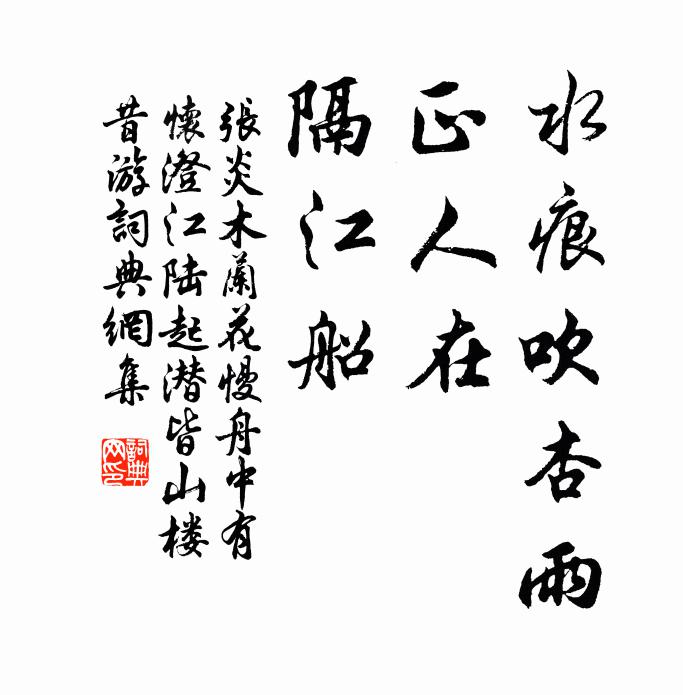 水痕吹杏雨
正人在
隔江船
張炎木蘭花慢舟中有
懷澄江陆起潜皆山楼
昔游詞典網集
詞典
网印